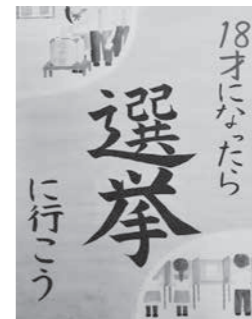 18才になったら
選挙
に行こう